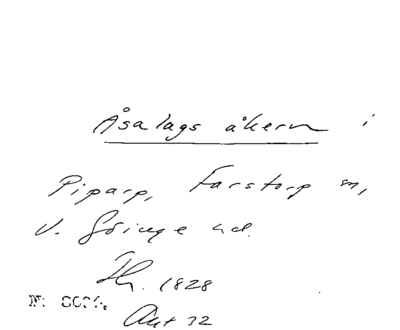 Åsalags åkern i
Piparp, Farstorp sn,
V. Göinge hd.
Th. 1828
Ant 32